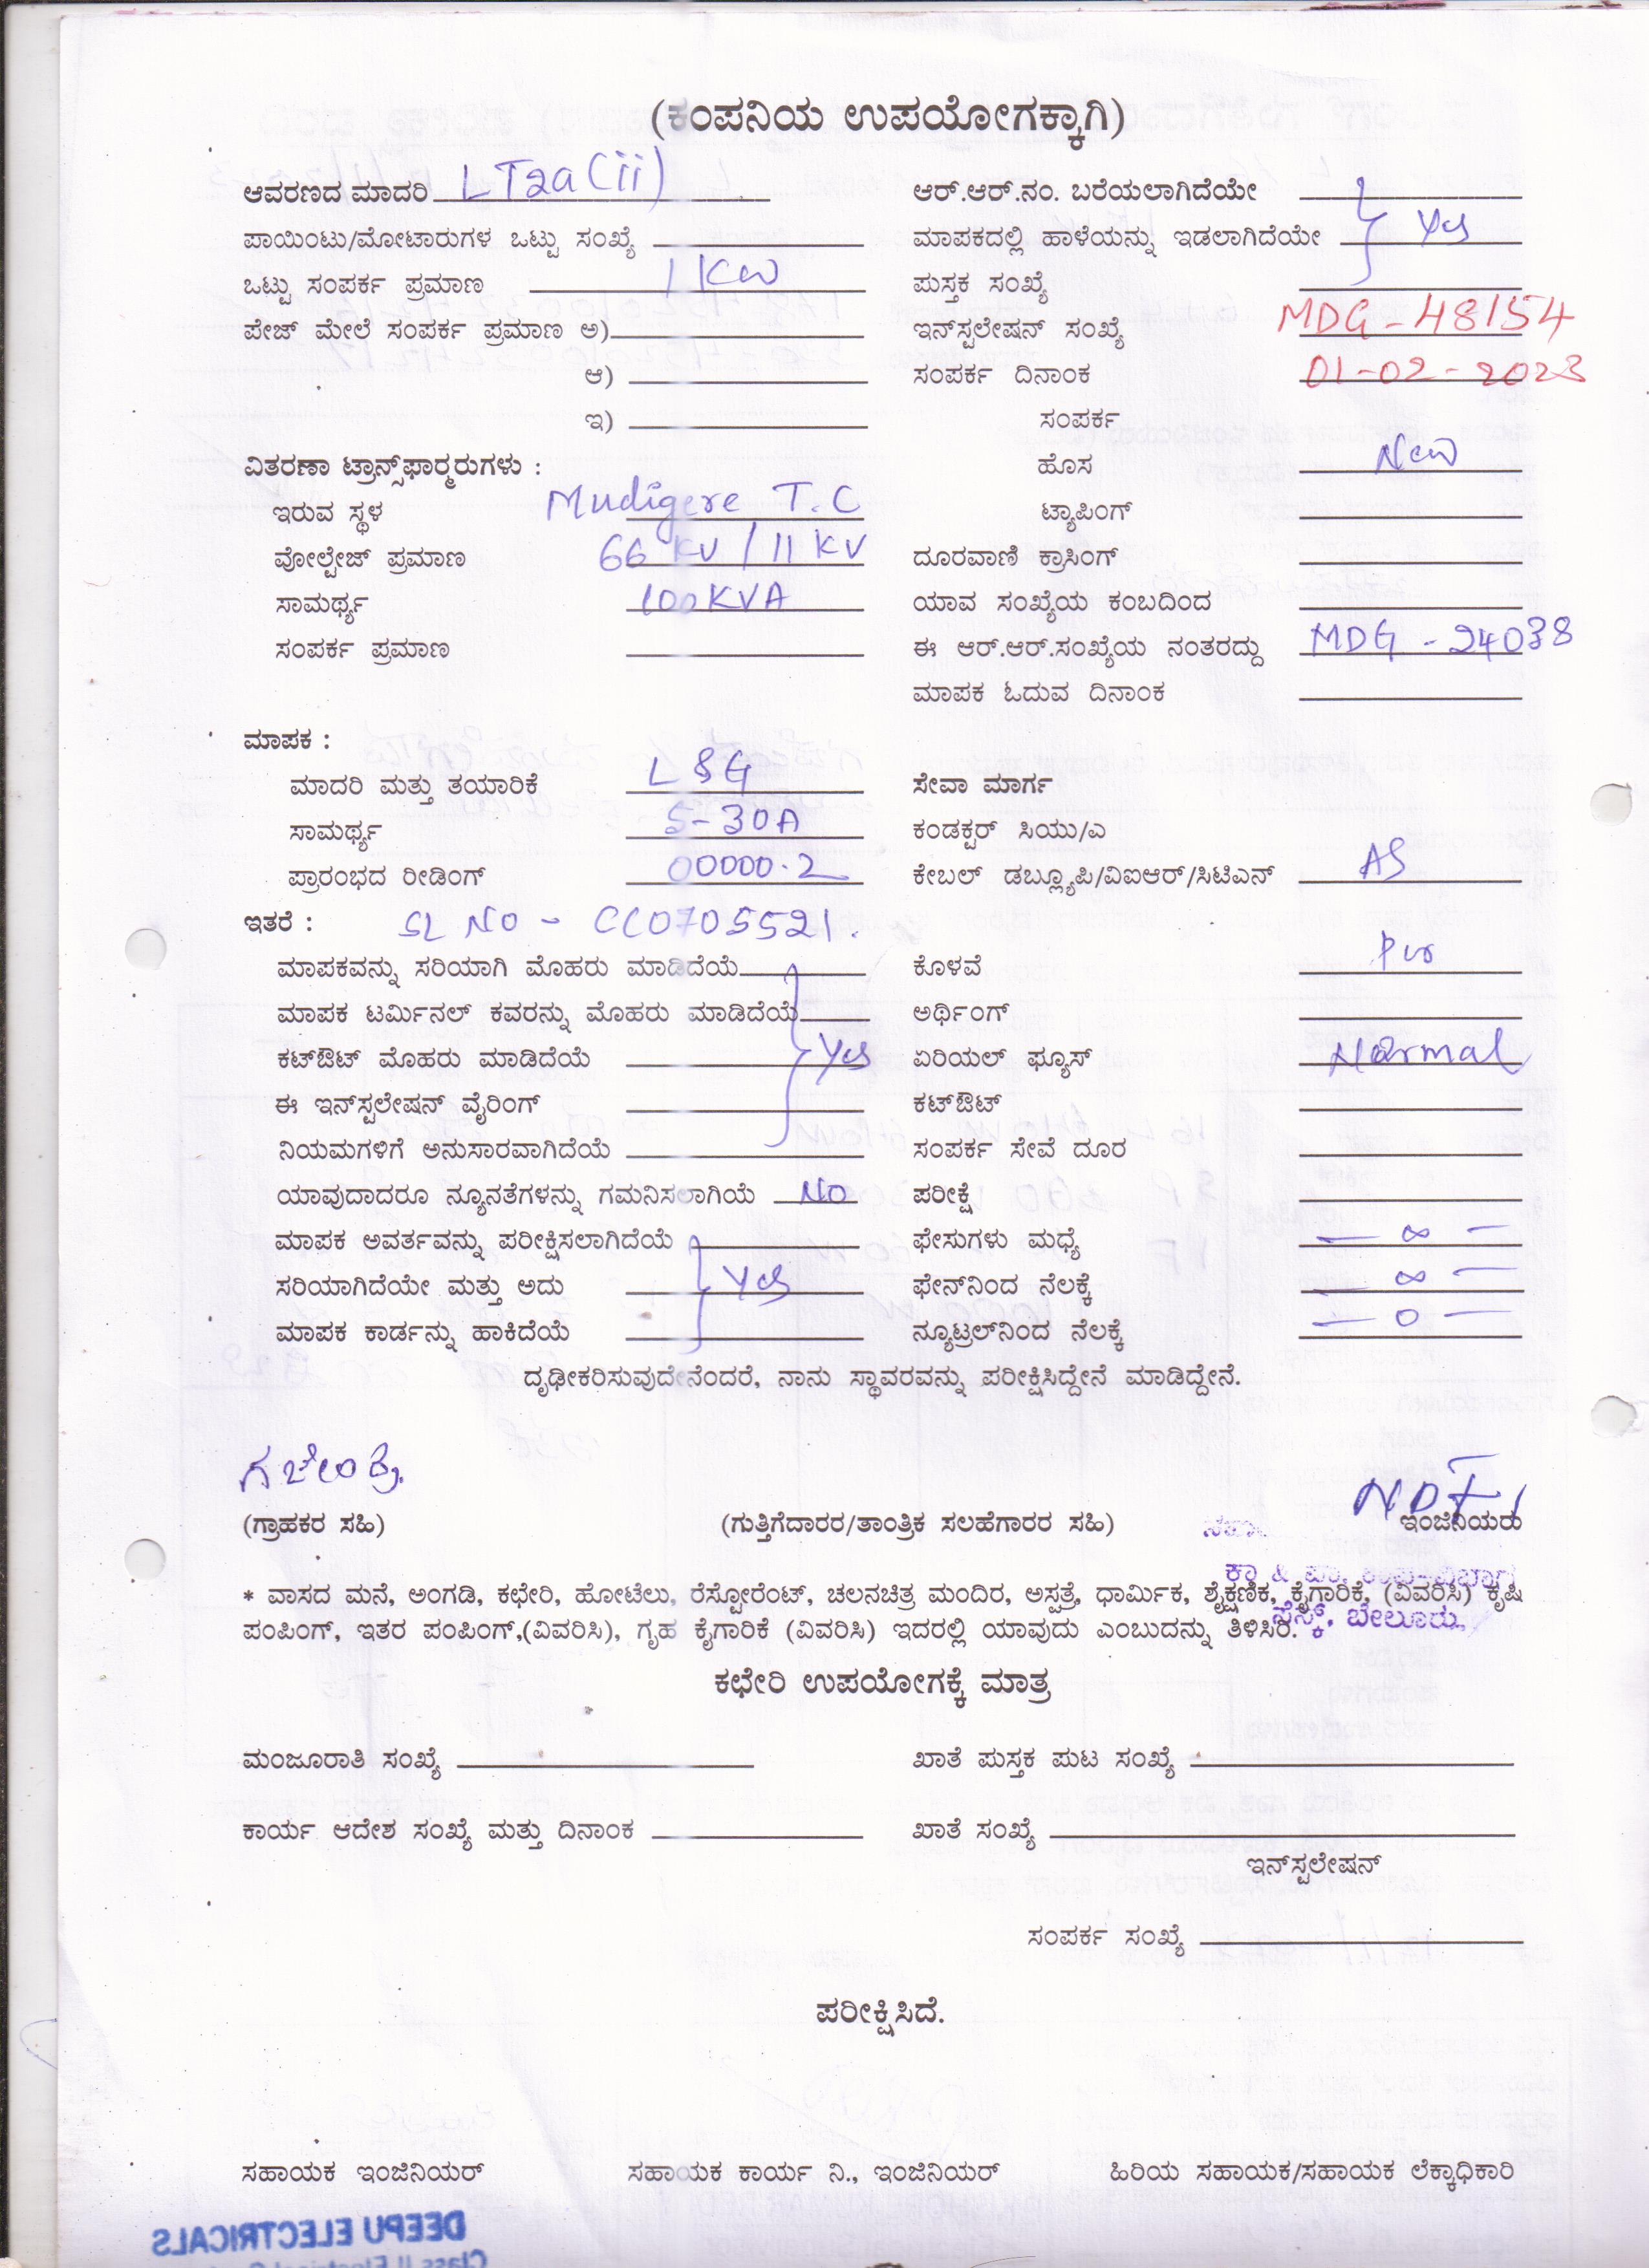 (ಕಂಪನಿಯ ಉಪಯೋಗಕ್ಕಾಗಿ)
ಆವರಣದ ಮಾದರಿ LT2a(ii) ಆರ್.ಆರ್.ನಂ. ಬರೆಯಲಾಗಿದೆಯೇ
ಪಾಯಿಂಟು/ಮೋಟಾರುಗಳ ಒಟ್ಟು ಸಂಖ್ಯೆ ಮಾಪಕದಲ್ಲಿ ಹಾಳೆಯನ್ನು ಇಡಲಾಗಿದೆಯೇ Yes
ಒಟ್ಟು ಸಂಪರ್ಕ ಪ್ರಮಾಣ 1 KW ಪುಸ್ತಕ ಸಂಖ್ಯೆ
ಪೇಜ್ ಮೇಲೆ ಸಂಪರ್ಕ ಪ್ರಮಾಣ ಅ) ಇನ್‌ಸ್ಟಲೇಷನ್ ಸಂಖ್ಯೆ MDG - 48154
ಆ) ಸಂಪರ್ಕ ದಿನಾಂಕ 01-02-2023
ಇ) ಸಂಪರ್ಕ
ವಿತರಣಾ ಟ್ರಾನ್ಸ್‌ಫಾರ್‍ಮರುಗಳು : ಹೊಸ New
ಇರುವ ಸ್ಥಳ Mudigere T.C ಟ್ಯಾಪಿಂಗ್
ವೋಲ್ಟೇಜ್ ಪ್ರಮಾಣ 66 KV / 11 KV ದೂರವಾಣಿ ಕ್ರಾಸಿಂಗ್
ಸಾಮರ್ಥ್ಯ 100KVA ಯಾವ ಸಂಖ್ಯೆಯ ಕಂಬದಿಂದ
ಸಂಪರ್ಕ ಪ್ರಮಾಣ ಈ ಆರ್.ಆರ್.ಸಂಖ್ಯೆಯ ನಂತರದ್ದು MDG - 24038
ಮಾಪಕ ಓದುವ ದಿನಾಂಕ
ಮಾಪಕ :
ಮಾದರಿ ಮತ್ತು ತಯಾರಿಕೆ L&G ಸೇವಾ ಮಾರ್ಗ
ಸಾಮರ್ಥ್ಯ 5-30A ಕಂಡಕ್ಟರ್ ಸಿಯು/ಎ
ಪ್ರಾರಂಭದ ರೀಡಿಂಗ್ 00000.2 ಕೇಬಲ್ ಡಬ್ಲ್ಯೂಪಿ/ವಿಐಆರ್/ಸಿಟಿಎನ್ AS
ಇತರೆ : SL NO - CC0705521.
ಮಾಪಕವನ್ನು ಸರಿಯಾಗಿ ಮೊಹರು ಮಾಡಿದೆಯೆ ಕೊಳವೆ
ಮಾಪಕ ಟರ್ಮಿನಲ್ ಕವರನ್ನು ಮೊಹರು ಮಾಡಿದೆಯೆ ಅರ್ಥಿಂಗ್
ಕಟ್‌ಔಟ್ ಮೊಹರು ಮಾಡಿದೆಯೆ Yes ಏರಿಯಲ್ ಫ್ಯೂಸ್ Normal
ಈ ಇನ್‌ಸ್ಟಲೇಷನ್ ವೈರಿಂಗ್ ಕಟ್‌ಔಟ್
ನಿಯಮಗಳಿಗೆ ಅನುಸಾರವಾಗಿದೆಯೆ ಸಂಪರ್ಕ ಸೇವೆ ದೂರ
ಯಾವುದಾದರೂ ನ್ಯೂನತೆಗಳನ್ನು ಗಮನಿಸಲಾಗಿಯೆ NO ಪರೀಕ್ಷೆ
ಮಾಪಕ ಅವರ್ತವನ್ನು ಪರೀಕ್ಷಿಸಲಾಗಿದೆಯೆ ಫೇಸುಗಳು ಮಧ್ಯೆ — ∞ —
ಸರಿಯಾಗಿದೆಯೇ ಮತ್ತು ಅದು Yes ಫೇನ್‌ನಿಂದ ನೆಲಕ್ಕೆ — ∞ —
ಮಾಪಕ ಕಾರ್ಡನ್ನು ಹಾಕಿದೆಯೆ ನ್ಯೂಟ್ರಲ್‌ನಿಂದ ನೆಲಕ್ಕೆ — 0 —
ದೃಢೀಕರಿಸುವುದೇನೆಂದರೆ, ನಾನು ಸ್ಥಾವರವನ್ನು ಪರೀಕ್ಷಿಸಿದ್ದೇನೆ ಮಾಡಿದ್ದೇನೆ.
(ಗ್ರಾಹಕರ ಸಹಿ) (ಗುತ್ತಿಗೆದಾರರ/ತಾಂತ್ರಿಕ ಸಲಹೆಗಾರರ ಸಹಿ) ಇಂಜಿನಿಯರು
* ವಾಸದ ಮನೆ, ಅಂಗಡಿ, ಕಛೇರಿ, ಹೋಟೆಲು, ರೆಸ್ಟೋರೆಂಟ್, ಚಲನಚಿತ್ರ ಮಂದಿರ, ಅಸ್ಪತ್ರೆ, ಧಾರ್ಮಿಕ, ಶೈಕ್ಷಣಿಕ, ಕೈಗಾರಿಕೆ, (ವಿವರಿಸಿ) ಕೃಷಿ
ಪಂಪಿಂಗ್, ಇತರ ಪಂಪಿಂಗ್,(ವಿವರಿಸಿ), ಗೃಹ ಕೈಗಾರಿಕೆ (ವಿವರಿಸಿ) ಇದರಲ್ಲಿ ಯಾವುದು ಎಂಬುದನ್ನು ತಿಳಿಸಿರಿ.
ಸೆಸ್ಕ್, ಬೇಲೂರು.
ಕಛೇರಿ ಉಪಯೋಗಕ್ಕೆ ಮಾತ್ರ
ಮಂಜೂರಾತಿ ಸಂಖ್ಯೆ ಖಾತೆ ಪುಸ್ತಕ ಪುಟ ಸಂಖ್ಯೆ
ಕಾರ್ಯ ಆದೇಶ ಸಂಖ್ಯೆ ಮತ್ತು ದಿನಾಂಕ ಖಾತೆ ಸಂಖ್ಯೆ
ಇನ್‌ಸ್ಟಲೇಷನ್
ಸಂಪರ್ಕ ಸಂಖ್ಯೆ
ಪರೀಕ್ಷಿಸಿದೆ.
ಸಹಾಯಕ ಇಂಜಿನಿಯರ್ ಸಹಾಯಕ ಕಾರ್ಯ ನಿ., ಇಂಜಿನಿಯರ್ ಹಿರಿಯ ಸಹಾಯಕ/ಸಹಾಯಕ ಲೆಕ್ಕಾಧಿಕಾರಿ
DEEPU ELECTRICALS